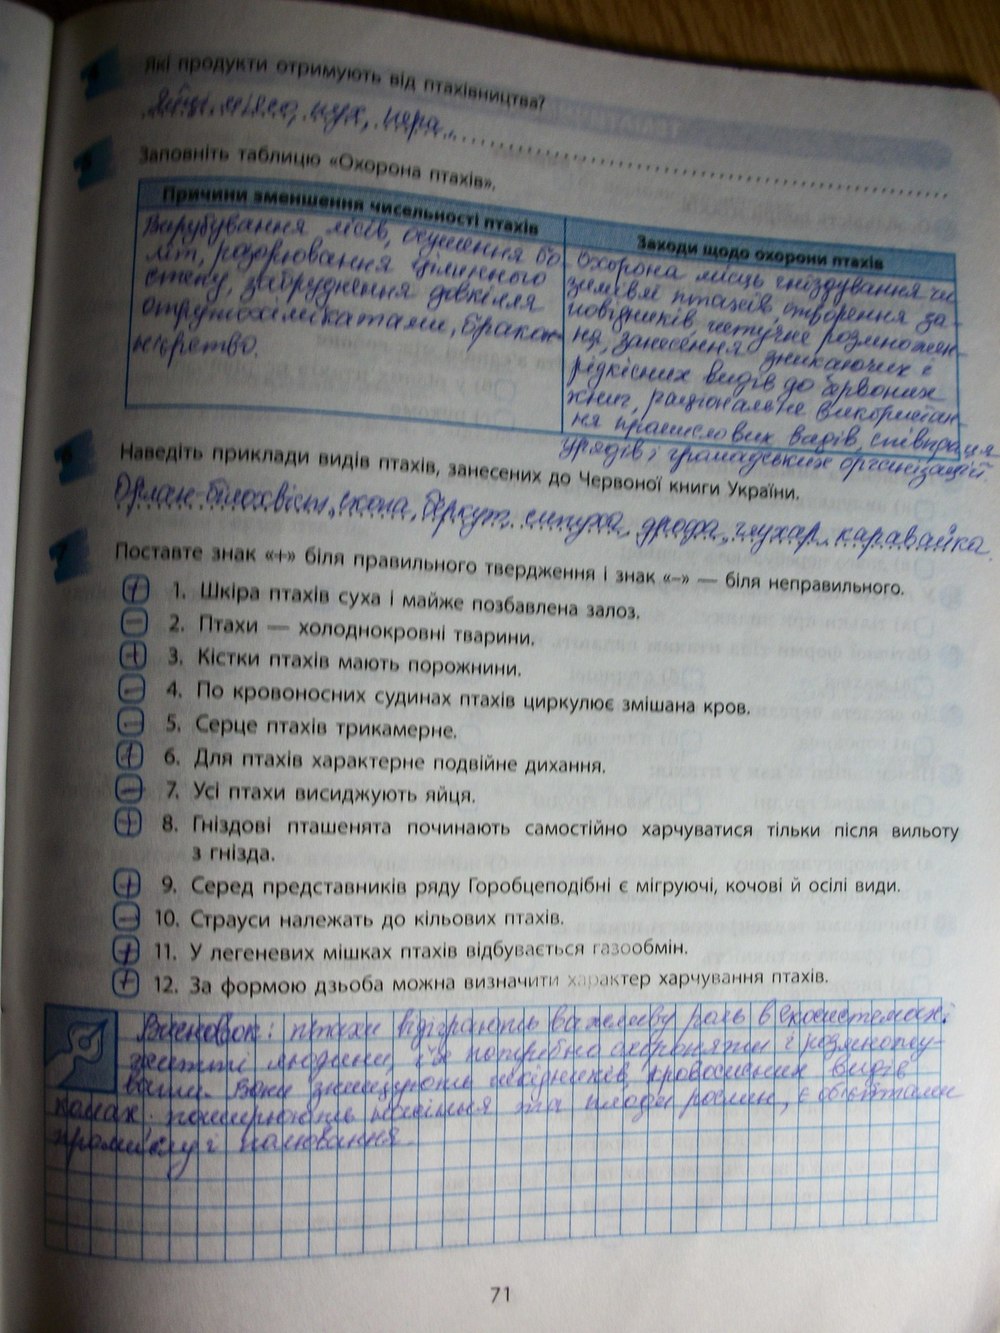 Які продукти отримують від птахівництва?
Яйця, м'ясо, пух, пера
Заповніть таблицю «Охорона птахів».
Причини зменшення чисельності птахів
Вирубування лісів, осушення бо-
літ, розорювання цілинного
степу, забруднення довкілля
отрутохімікатами, бракон-
ньєрство.
Заходи щодо охорони птахів
Охорона місць гніздування чи
зимівлі птахів, створення за-
повідників, штучне розмножен-
ня, занесення зникаючих і
рідкісних видів до Червоних
книг, раціональне використан-
ня промислових видів, співпраця
урядів і громадських організацій.
6
Наведіть приклади видів птахів, занесених до Червоної книги України.
Орлан-білохвіст, скопа, беркут, сипуха, дрофа, глухар, каравайка
7
Поставте знак «+» біля правильного твердження і знак «–» — біля неправильного.
+ 1. Шкіра птахів суха і майже позбавлена залоз.
– 2. Птахи — холоднокровні тварини.
+ 3. Кістки птахів мають порожнини.
– 4. По кровоносних судинах птахів циркулює змішана кров.
– 5. Серце птахів трикамерне.
+ 6. Для птахів характерне подвійне дихання.
– 7. Усі птахи висиджують яйця.
+ 8. Гніздові пташенята починають самостійно харчуватися тільки після вильоту
з гнізда.
+ 9. Серед представників ряду Горобцеподібні є мігруючі, кочові й осілі види.
– 10. Страуси належать до кільових птахів.
+ 11. У легеневих мішках птахів відбувається газообмін.
+ 12. За формою дзьоба можна визначити характер харчування птахів.
Висновок: птахи відіграють важливу роль в екосистемах і
житті людини, їх потрібно охороняти і розмножу-
вати. Вони знищують шкідників, кровосисних видів
комах, поширюють насіння та плоди рослин, є об'єктами
промислу і полювання.
71